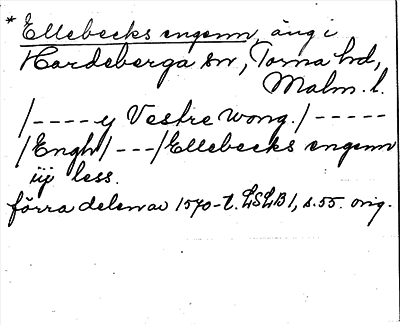 * Ellebecks engenn, äng i
Hardeberga sn, Torna hd,
Malm. l.
/----y Vestre wong./-----
/Engh/---/Ellebecks engenn
iij less.
förra delen av 1570-t. LSLB 1, s. 55. orig.